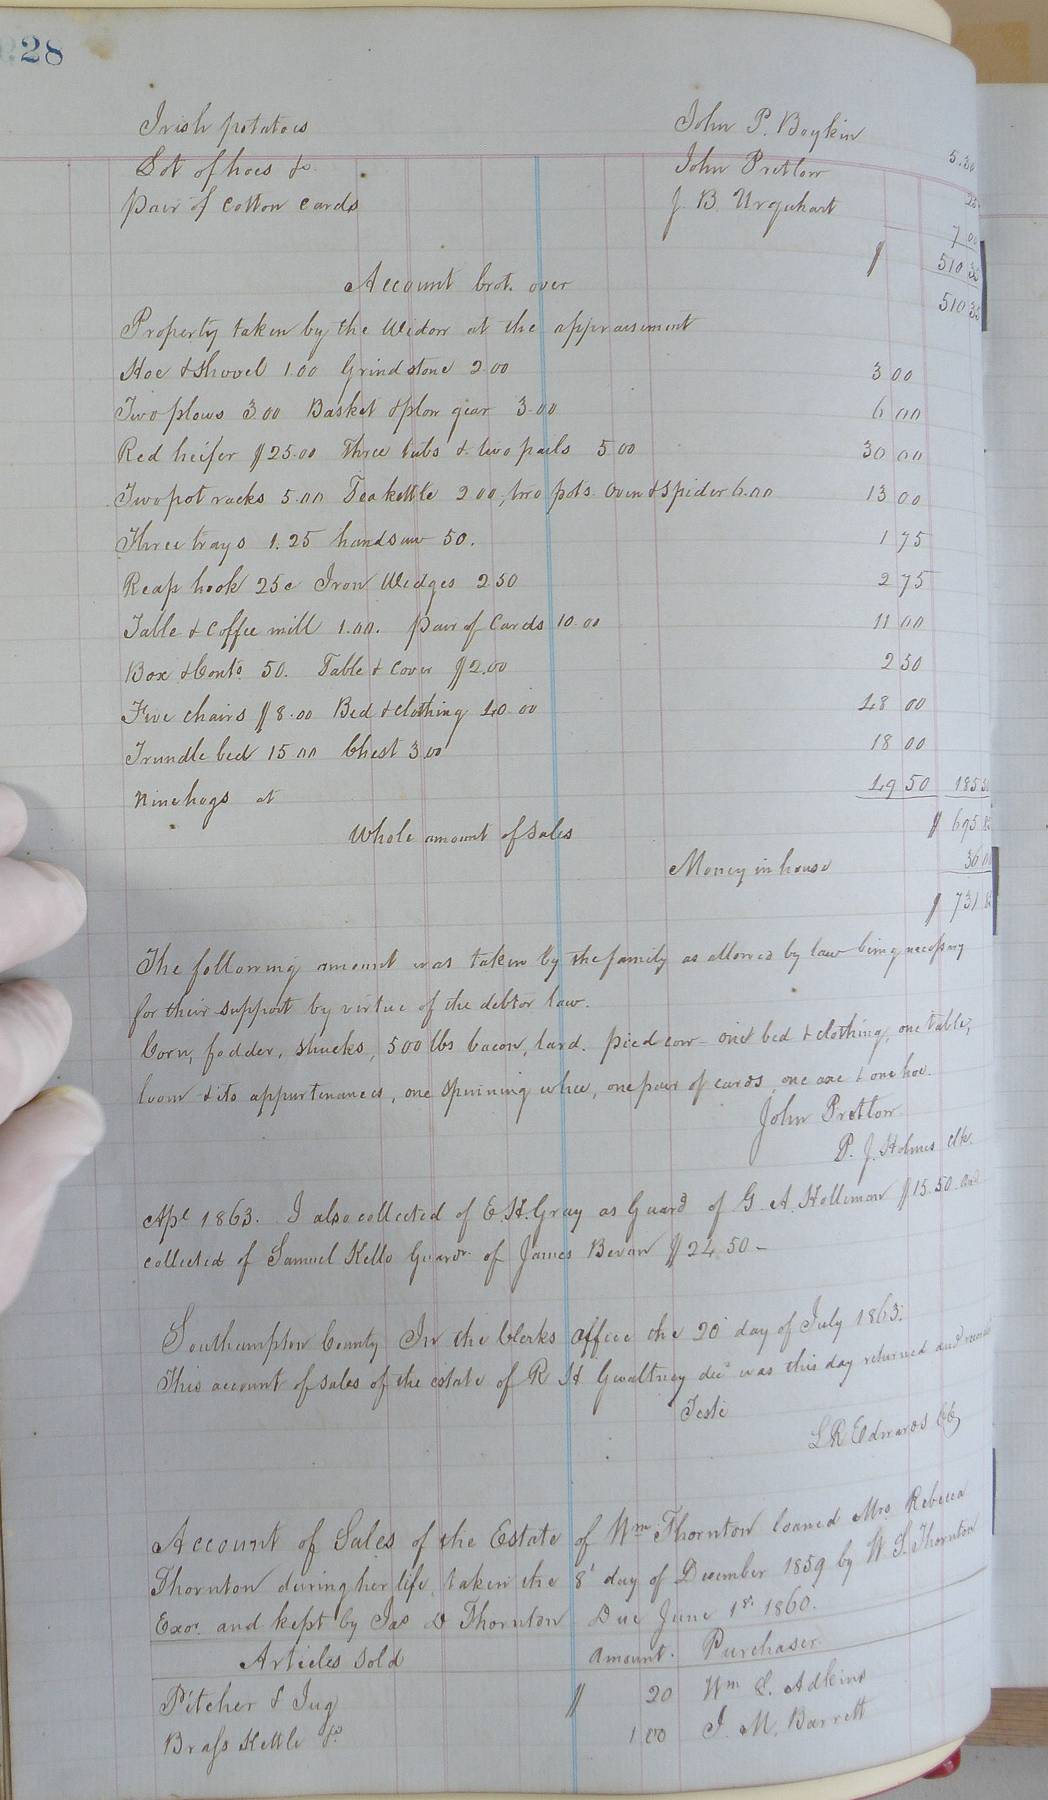 28
Irish potatoes John P. Boykin 5.30
Lot of hoes &c John Pretlow
Pair of cotton cards J. B. Urquhart 7 00
$ 510 35
Account brot. over 510 35
Property taken by the Widow at the appraisement
Hoe & Shovel 1.00 Grindstone 2.00 3 00
Two plows 3.00 Basket & plow gear 3.00 6 00
Red heifer $25.00 Three tubs & two pails 5 00 30 00
Two pot racks 5.00 Tea kettle 2 00, two pots Oven & Spider 6.00 13 00
Three trays 1.25 handsaw 50. 1 75
Reap hook 25c Iron Wedges 2 50 2 75
Table & Coffee mill 1.00. Pair of Cards 10.00 11 00
Box & Conts. 50. Table & Cover $2.00 2 50
Five chairs $8.00 Bed & clothing 40.00 48 00
Trundle bed 15 00 Chest 3 00 18 00
Nine hogs at 49 50 185 50
Whole amount of Sales $ 695 85
Money in house 36 00
$ 731 85
The following amount was taken by the family as allowed by law being necessary
for their support by virtue of the debtor law.
Corn, fodder, shucks, 500 lbs bacon, lard. pied cow - one bed & clothing, one table,
loom & its appurtenances, one Spinning whee, one pair of cards, one axe & one hoe.
John Pretlow
P. J. Holmes Clk.
Apl 1863. I also collected of E. H. Gray as Guard of G. A. Holleman $15.50. and
collected of Samuel Kello Guardr. of James Bevan $24.50 -
Southampton County In the Clerks office the 20 day of July 1863.
This account of sales of the estate of R H Gwaltney decd was this day returned and
Teste
L R Edwards CC
Account of Sales of the Estate of Wm Thornton loaned Mrs Rebecca
Thornton during her life, taken the 8t day of December 1859 by W. S. Thornton
Exor. and kept by Jas D Thornton Due June 1st. 1860.
Articles Sold amount. Purchaser
Pitcher & Jug $ 20 Wm L. Adkins
Brass Kettle &c. 1 00 J. M. Barrett